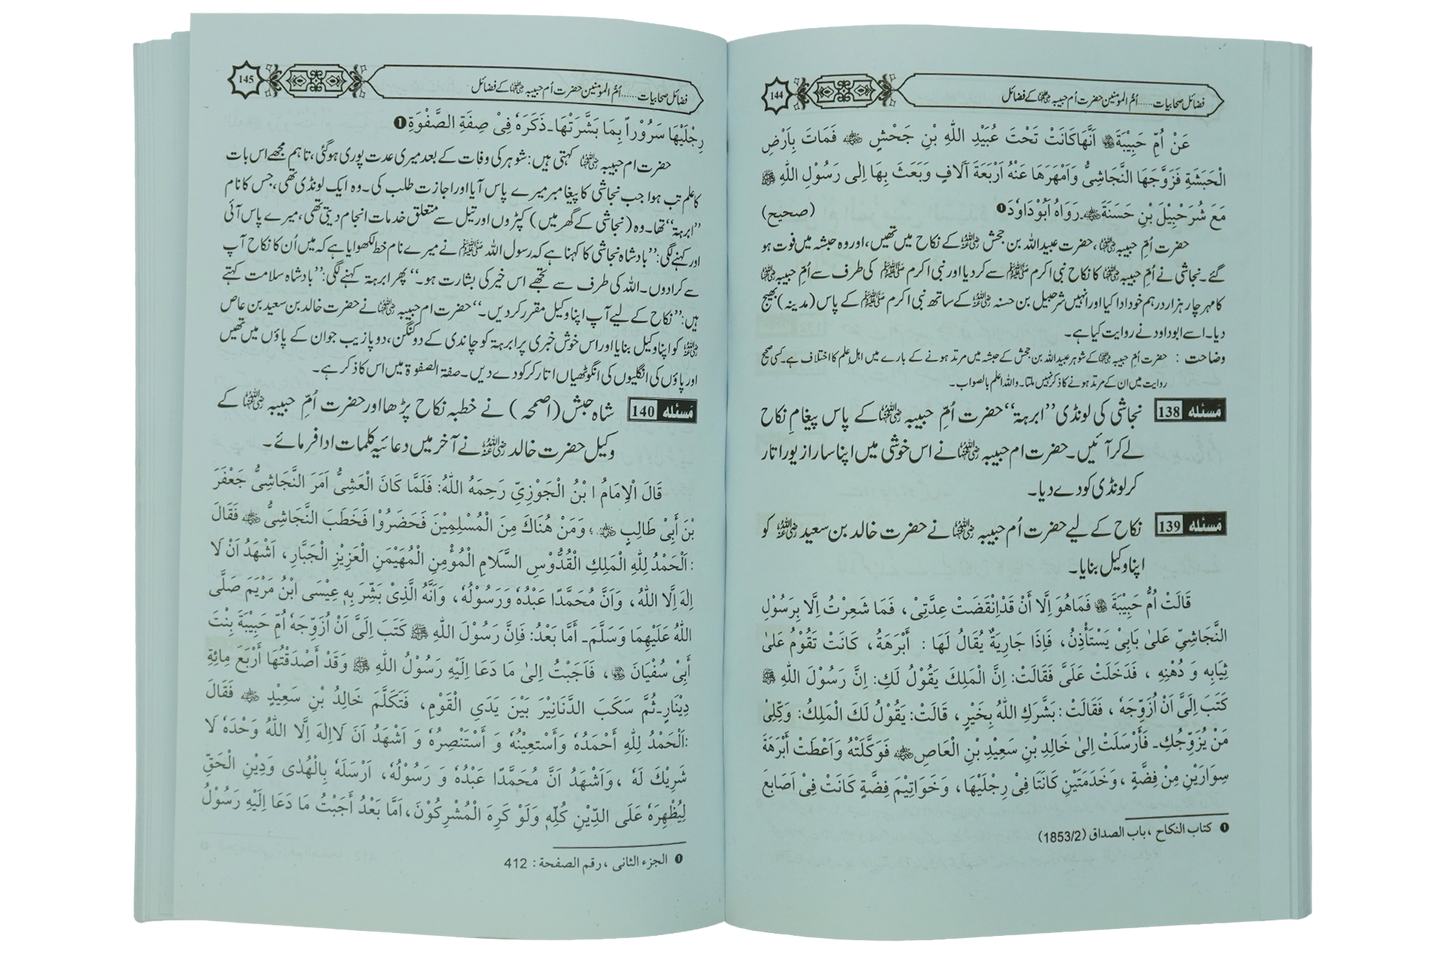 144
فضائل صحابیات...... اُمّ المؤمنین حضرت اُم حبیبہ رضی اللہ عنہا کے فضائل
عَنْ اُمِّ حَبِيْبَةَ ؓ اَنَّهَا كَانَتْ تَحْتَ عُبَيْدِ اللّٰهِ بْنِ جَحْشٍ ؓ فَمَاتَ بِاَرْضِ
الْحَبَشَةِ فَزَوَّجَهَا النَّجَاشِىُّ وَاَمْهَرَهَا عَنْهُ اَرْبَعَةَ آلَافٍ وَبَعَثَ بِهَا اِلٰى رَسُوْلِ اللّٰهِ ﷺ
مَعَ شُرَحْبِيْلَ بْنِ حَسَنَةَ ؓ۔ رَوَاهُ اَبُوْدَاوٗدَ❶ (صحيح)
حضرت اُمّ حبیبہ رضی اللہ عنہا، حضرت عبید اللہ بن جحش رضی اللہ عنہ کے نکاح میں تھیں، اور وہ حبشہ میں فوت ہو
گئے۔ نجاشی نے اُمِّ حبیبہ رضی اللہ عنہا کا نکاح نبی اکرم ﷺ سے کر دیا اور نبی اکرم ﷺ کی طرف سے اُمِّ حبیبہ رضی اللہ عنہا
کا مہر چار ہزار درہم خود ادا کیا اور انہیں شرحبیل بن حسنہ رضی اللہ عنہ کے ساتھ نبی اکرم ﷺ کے پاس (مدینہ) بھیج
دیا۔ اسے ابوداود نے روایت کیا ہے۔
وضاحت : حضرت اُمّ حبیبہ رضی اللہ عنہا کے شوہر عبید اللہ بن جحش کے حبشہ میں مرتد ہونے کے بارے میں اہل علم کا اختلاف ہے۔ کسی صحیح
روایت میں ان کے مرتد ہونے کا ذکر نہیں ملتا۔ واللہ اعلم بالصواب۔
مَسئله 138 نجاشی کی لونڈی ”ابرہۃ“ حضرت اُمِّ حبیبہ رضی اللہ عنہا کے پاس پیغام نکاح
لے کر آئیں۔ حضرت ام حبیبہ رضی اللہ عنہا نے اس خوشی میں اپنا سارا زیور اتار
کر لونڈی کو دے دیا۔
مَسئله 139 نکاح کے لیے حضرت اُم حبیبہ رضی اللہ عنہا نے حضرت خالد بن سعید رضی اللہ عنہ کو
اپنا وکیل بنایا۔
قَالَتْ اُمُّ حَبِيْبَةَ ؓ فَمَاهُوَ اِلَّا أَنْ قَدِانْقَضَتْ عِدَّتِىْ، فَمَا شَعِرْتُ اِلَّا بِرَسُوْلِ
النَّجَاشِىِّ عَلىٰ بَابِىْ يَسْتَأْذِنُ، فَاِذَا جَارِيَةٌ يُقَالُ لَهَا : أَبْرَهَةُ، كَانَتْ تَقُوْمُ عَلىٰ
ثِيَابِهٖ وَ دُهْنِهٖ ، فَدَخَلَتْ عَلَىَّ فَقَالَتْ: اِنَّ الْمَلِكَ يَقُوْلُ لَكِ: اِنَّ رَسُوْلَ اللّٰهِ ﷺ
كَتَبَ اِلَىَّ اَنْ اُزَوِّجَهٗ ، فَقَالَتْ: بَشَّرَكِ اللّٰهُ بِخَيْرٍ، قَالَتْ: يَقُوْلُ لَكِ الْمَلِكُ: وَكِّلِىْ
مَنْ يُّزَوِّجُكِ۔ فَأَرْسَلَتْ اِلىٰ خَالِدِ بْنِ سَعِيْدِ بْنِ الْعَاصِ ؓ فَوَكَّلَتْهُ وَاَعْطَتْ أَبْرَهَةَ
سِوَارَيْنِ مِنْ فِضَّةٍ ، وَخَدَمَتَيْنِ كَانَتَا فِىْ رِجْلَيْهَا، وَخَوَاتِيْمَ فِضَّةٍ كَانَتْ فِىْ اَصَابِعَ
❶ كتاب النكاح ، باب الصداق (1853/2)
145
فضائل صحابیات...... اُمّ المؤمنین حضرت اُم حبیبہ رضی اللہ عنہا کے فضائل
رِجْلَيْهَا سَرُوْراً بِمَا بَشَّرَتْهَا۔ ذَكَرَهٗ فِىْ صِفَةِ الصَّفْوَةِ❶
حضرت ام حبیبہ رضی اللہ عنہا کہتی ہیں: شوہر کی وفات کے بعد میری عدت پوری ہو گئی، تاہم مجھے اس بات
کا علم تب ہوا جب نجاشی کا پیغامبر میرے پاس آیا اور اجازت طلب کی۔ وہ ایک لونڈی تھی، جس کا نام
”ابرہۃ“ تھا۔ وہ (نجاشی کے گھر میں) کپڑوں اور تیل سے متعلق خدمات انجام دیتی تھی، میرے پاس آئی
اور کہنے لگی: ”بادشاہ نجاشی کا کہنا ہے کہ رسول اللہ ﷺ نے میرے نام خط لکھوایا ہے کہ میں اُن کا نکاح آپ
سے کرا دوں۔ اللہ کی طرف سے تجھے اس خیر کی بشارت ہو۔“ پھر ابرہۃ کہنے لگی: ”بادشاہ سلامت کہتے
ہیں: ”نکاح کے لیے آپ اپنا وکیل مقرر کر دیں۔“ حضرت ام حبیبہ رضی اللہ عنہا نے حضرت خالد بن سعید بن عاص
رضی اللہ عنہ کو اپنا وکیل بنایا اور اس خوش خبری پر ابرہۃ کو چاندی کے دو کنگن، دو پازیب جو ان کے پاؤں میں تھیں
اور پاؤں کی انگلیوں کی انگوٹھیاں اتار کر کو دے دیں۔ صفۃ الصفوۃ میں اس کا ذکر ہے۔
مَسئله 140 شاہ حبش (اصحمہ) نے خطبہ نکاح پڑھا اور حضرت اُمّ حبیبہ رضی اللہ عنہا کے
وکیل حضرت خالد رضی اللہ عنہ نے آخر میں دعائیہ کلمات ادا فرمائے۔
قَالَ الْاِمَامُ ابْنُ الْجَوْزِىِّ رَحِمَهُ اللّٰهُ: فَلَمَّا كَانَ الْعَشِىُّ اَمَرَ النَّجَاشِىُّ جَعْفَرَ
بْنَ أَبِىْ طَالِبٍ ؓ ، وَمَنْ هُنَاكَ مِنَ الْمُسْلِمِيْنَ فَحَضَرُوْا فَخَطَبَ النَّجَاشِىُّ ؓ فَقَالَ
:اَلْحَمْدُ لِلّٰهِ الْمَلِكِ الْقُدُّوْسِ السَّلَامِ الْمُؤْمِنِ الْمُهَيْمَنِ الْعَزِيْزِ الْجَبَّارِ، اَشْهَدُ اَنْ لَا
اِلٰهَ اِلَّا اللّٰهُ، وَاَنَّ مُحَمَّدًا عَبْدُهٗ وَرَسُوْلُهٗ، وَاَنَّهُ الَّذِىْ بَشِّرَ بِهٖ عِيْسَى ابْنُ مَرْيَمَ صَلَّى
اللّٰهُ عَلَيْهِمَا وَسَلَّمَ۔ أَمَّا بَعْدُ: فَاِنَّ رَسُوْلَ اللّٰهِ ﷺ كَتَبَ اِلَىَّ اَنْ اُزَوِّجَهٗ اُمَّ حَبِيْبَةَ بِنْتَ
أَبِىْ سُفْيَانَ ؓ ، فَاَجَبْتُ اِلىٰ مَا دَعَا اِلَيْهِ رَسُوْلُ اللّٰهِ ﷺ وَقَدْ أَصْدَقْتُهَا أَرْبَعَ مِائَةِ
دِيْنَارٍ۔ ثُمَّ سَكَبَ الدَّنَانِيْرَ بَيْنَ يَدَىِ الْقَوْمِ، فَتَكَلَّمَ خَالِدُ بْنِ سَعِيْدٍ ؓ فَقَالَ
:اَلْحَمْدُ لِلّٰهِ أَحْمَدُهٗ وَأَسْتَعِيْنُهٗ وَ اَسْتَنْصِرُهٗ وَ اَشْهَدُ اَنَ لَااِلٰهَ اِلَّا اللّٰهُ وَحْدَهٗ لَا
شَرِيْكَ لَهٗ ، وَاَشْهَدُ اَنَّ مُحَمَّدًا عَبْدُهٗ وَ رَسُوْلُهٗ، اَرْسَلَهٗ بِالْهُدٰى وَدِيْنِ الْحَقِّ
لِيُظْهِرَهٗ عَلَى الدِّيْنِ كُلِّهٖ وَلَوْ كَرِهَ الْمُشْرِكُوْنَ، اَمَّا بَعْدُ أَجَبْتُ مَا دَعَا اِلَيْهِ رَسُوْلُ
❶ الجزء الثانى ، رقم الصفحة : 412